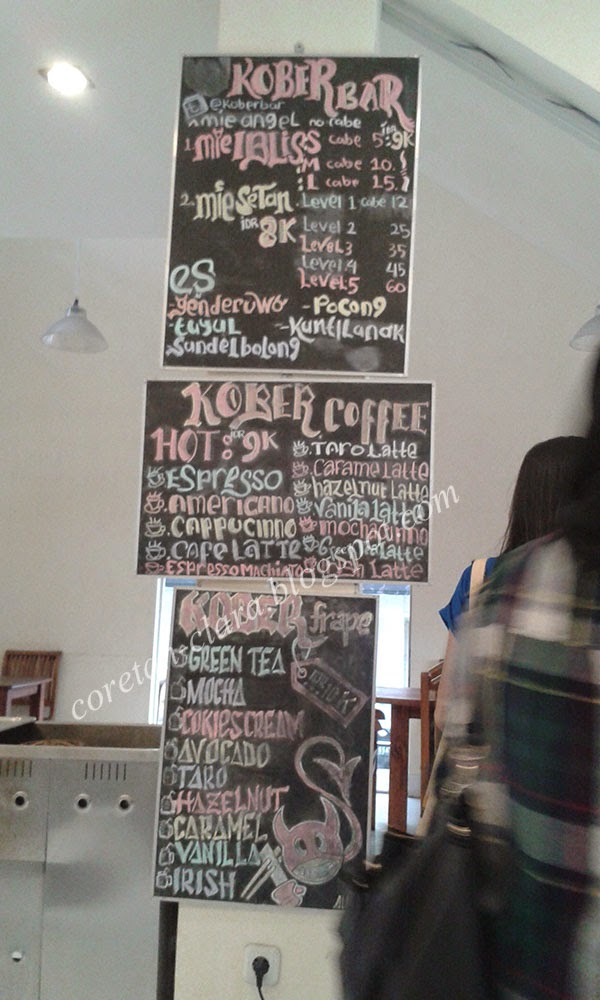 KOBER BAR
@koberbar
mie angel no cabe
1. mie IBLIS S cabe 5 IDR 9K
M cabe 10
L cabe 15
2. mie setan Level 1 cabe 12
IDR 8K Level 2 25
Level 3 35
Level 4 45
Level 5 60
es
-genderuwo -Pocong
-tuyul -Kuntilanak
-Sundelbolong
KOBER COFFEE
HOT: IDR 9K
Taro Latte
ESPRESSO
Caramel Latte
AMERICANO
hazelnut Latte
CAPPUCINNO
Vanila latte
CAFE LATTE
mochaccino
ESPRESSO MACHIATO
Latte
Latte
KOBER frape
GREEN TEA
MOCHA
COKIPSCREAM
AVOCADO
TARO
HAZELNUT
CARAMEL
VANILLA
IRISH
IDR 10K
coretansclara.blogspot.com